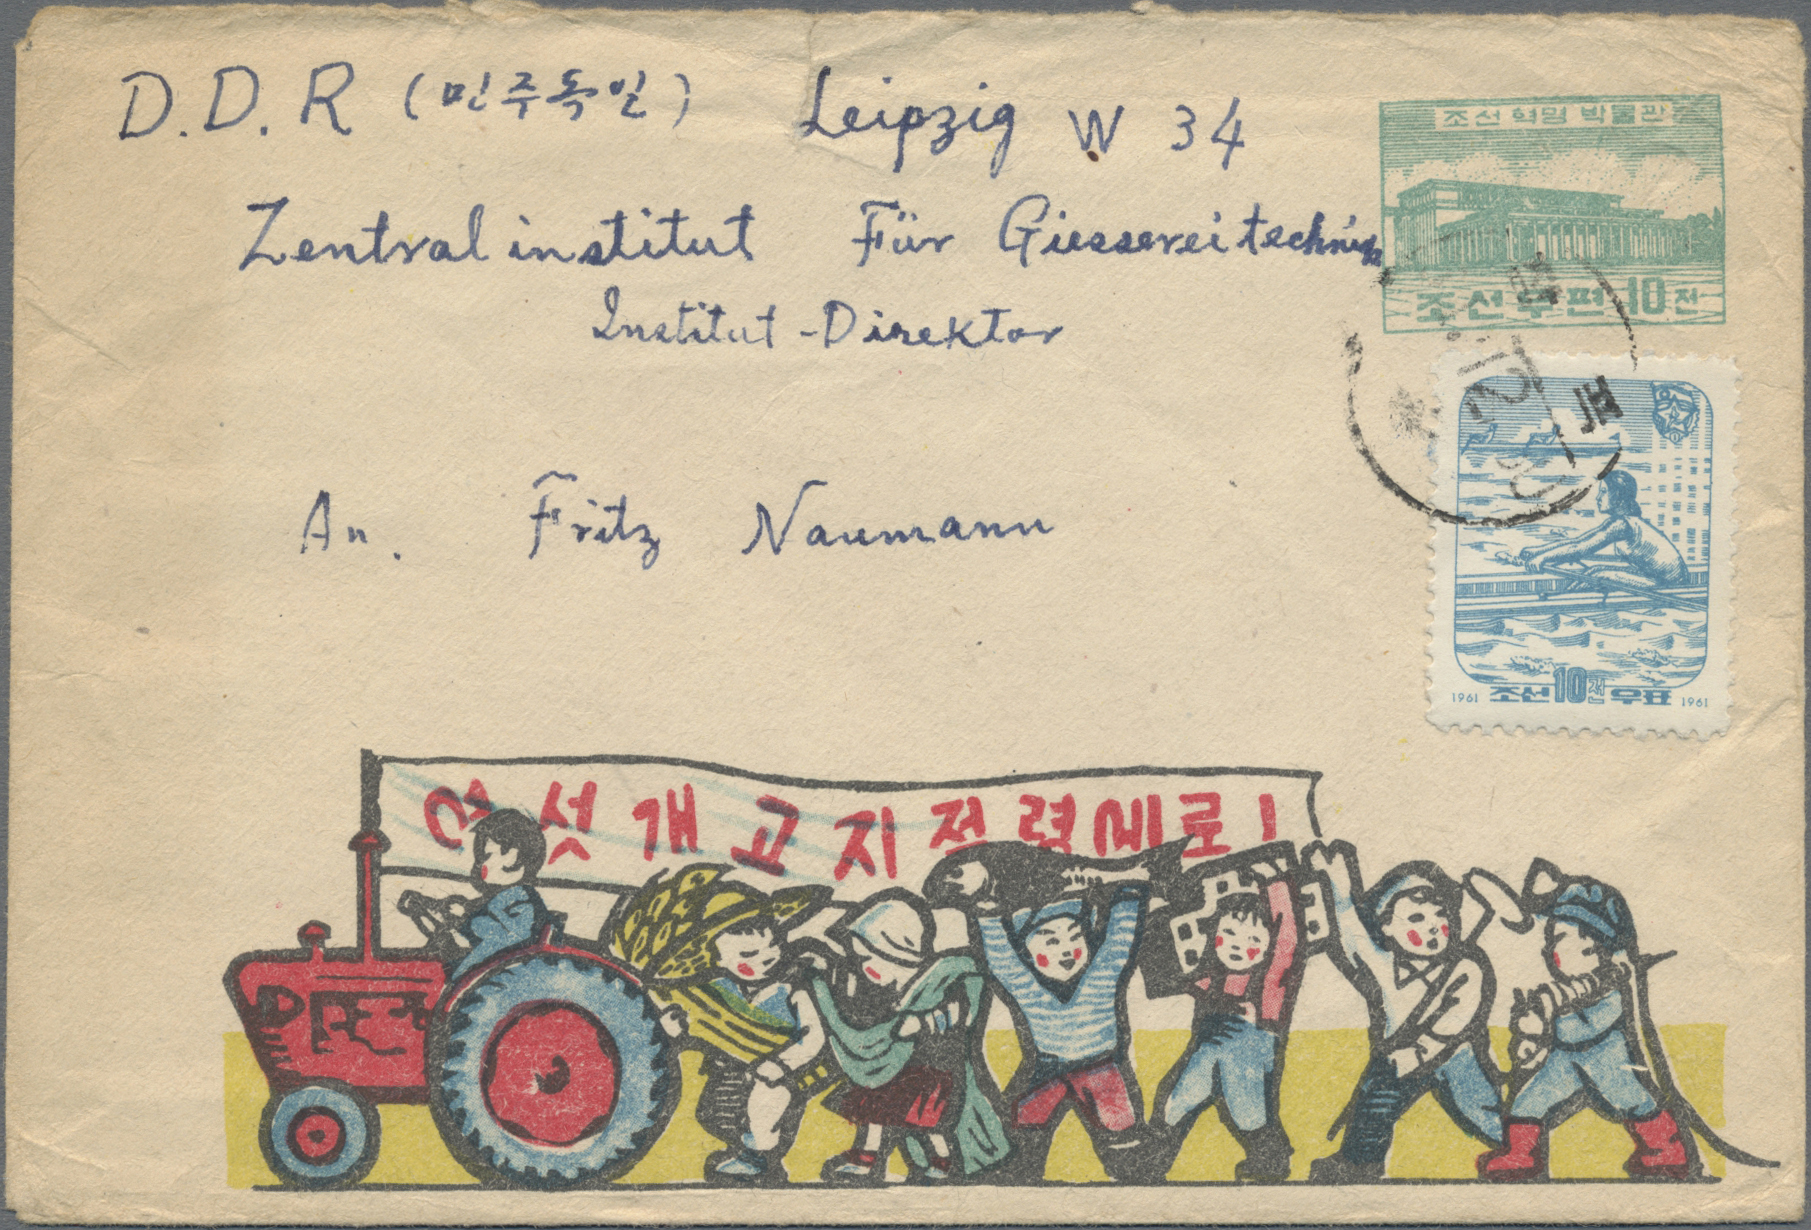 D.D.R (민주독일) Leipzig W 34
Zentralinstitut Für Giessereitechnik
Institut-Direktor
An. Fritz Naumann
조선혁명박물관
조선우편 10전
1961 조선 10전 우표 1961
여섯개고지점령에로!